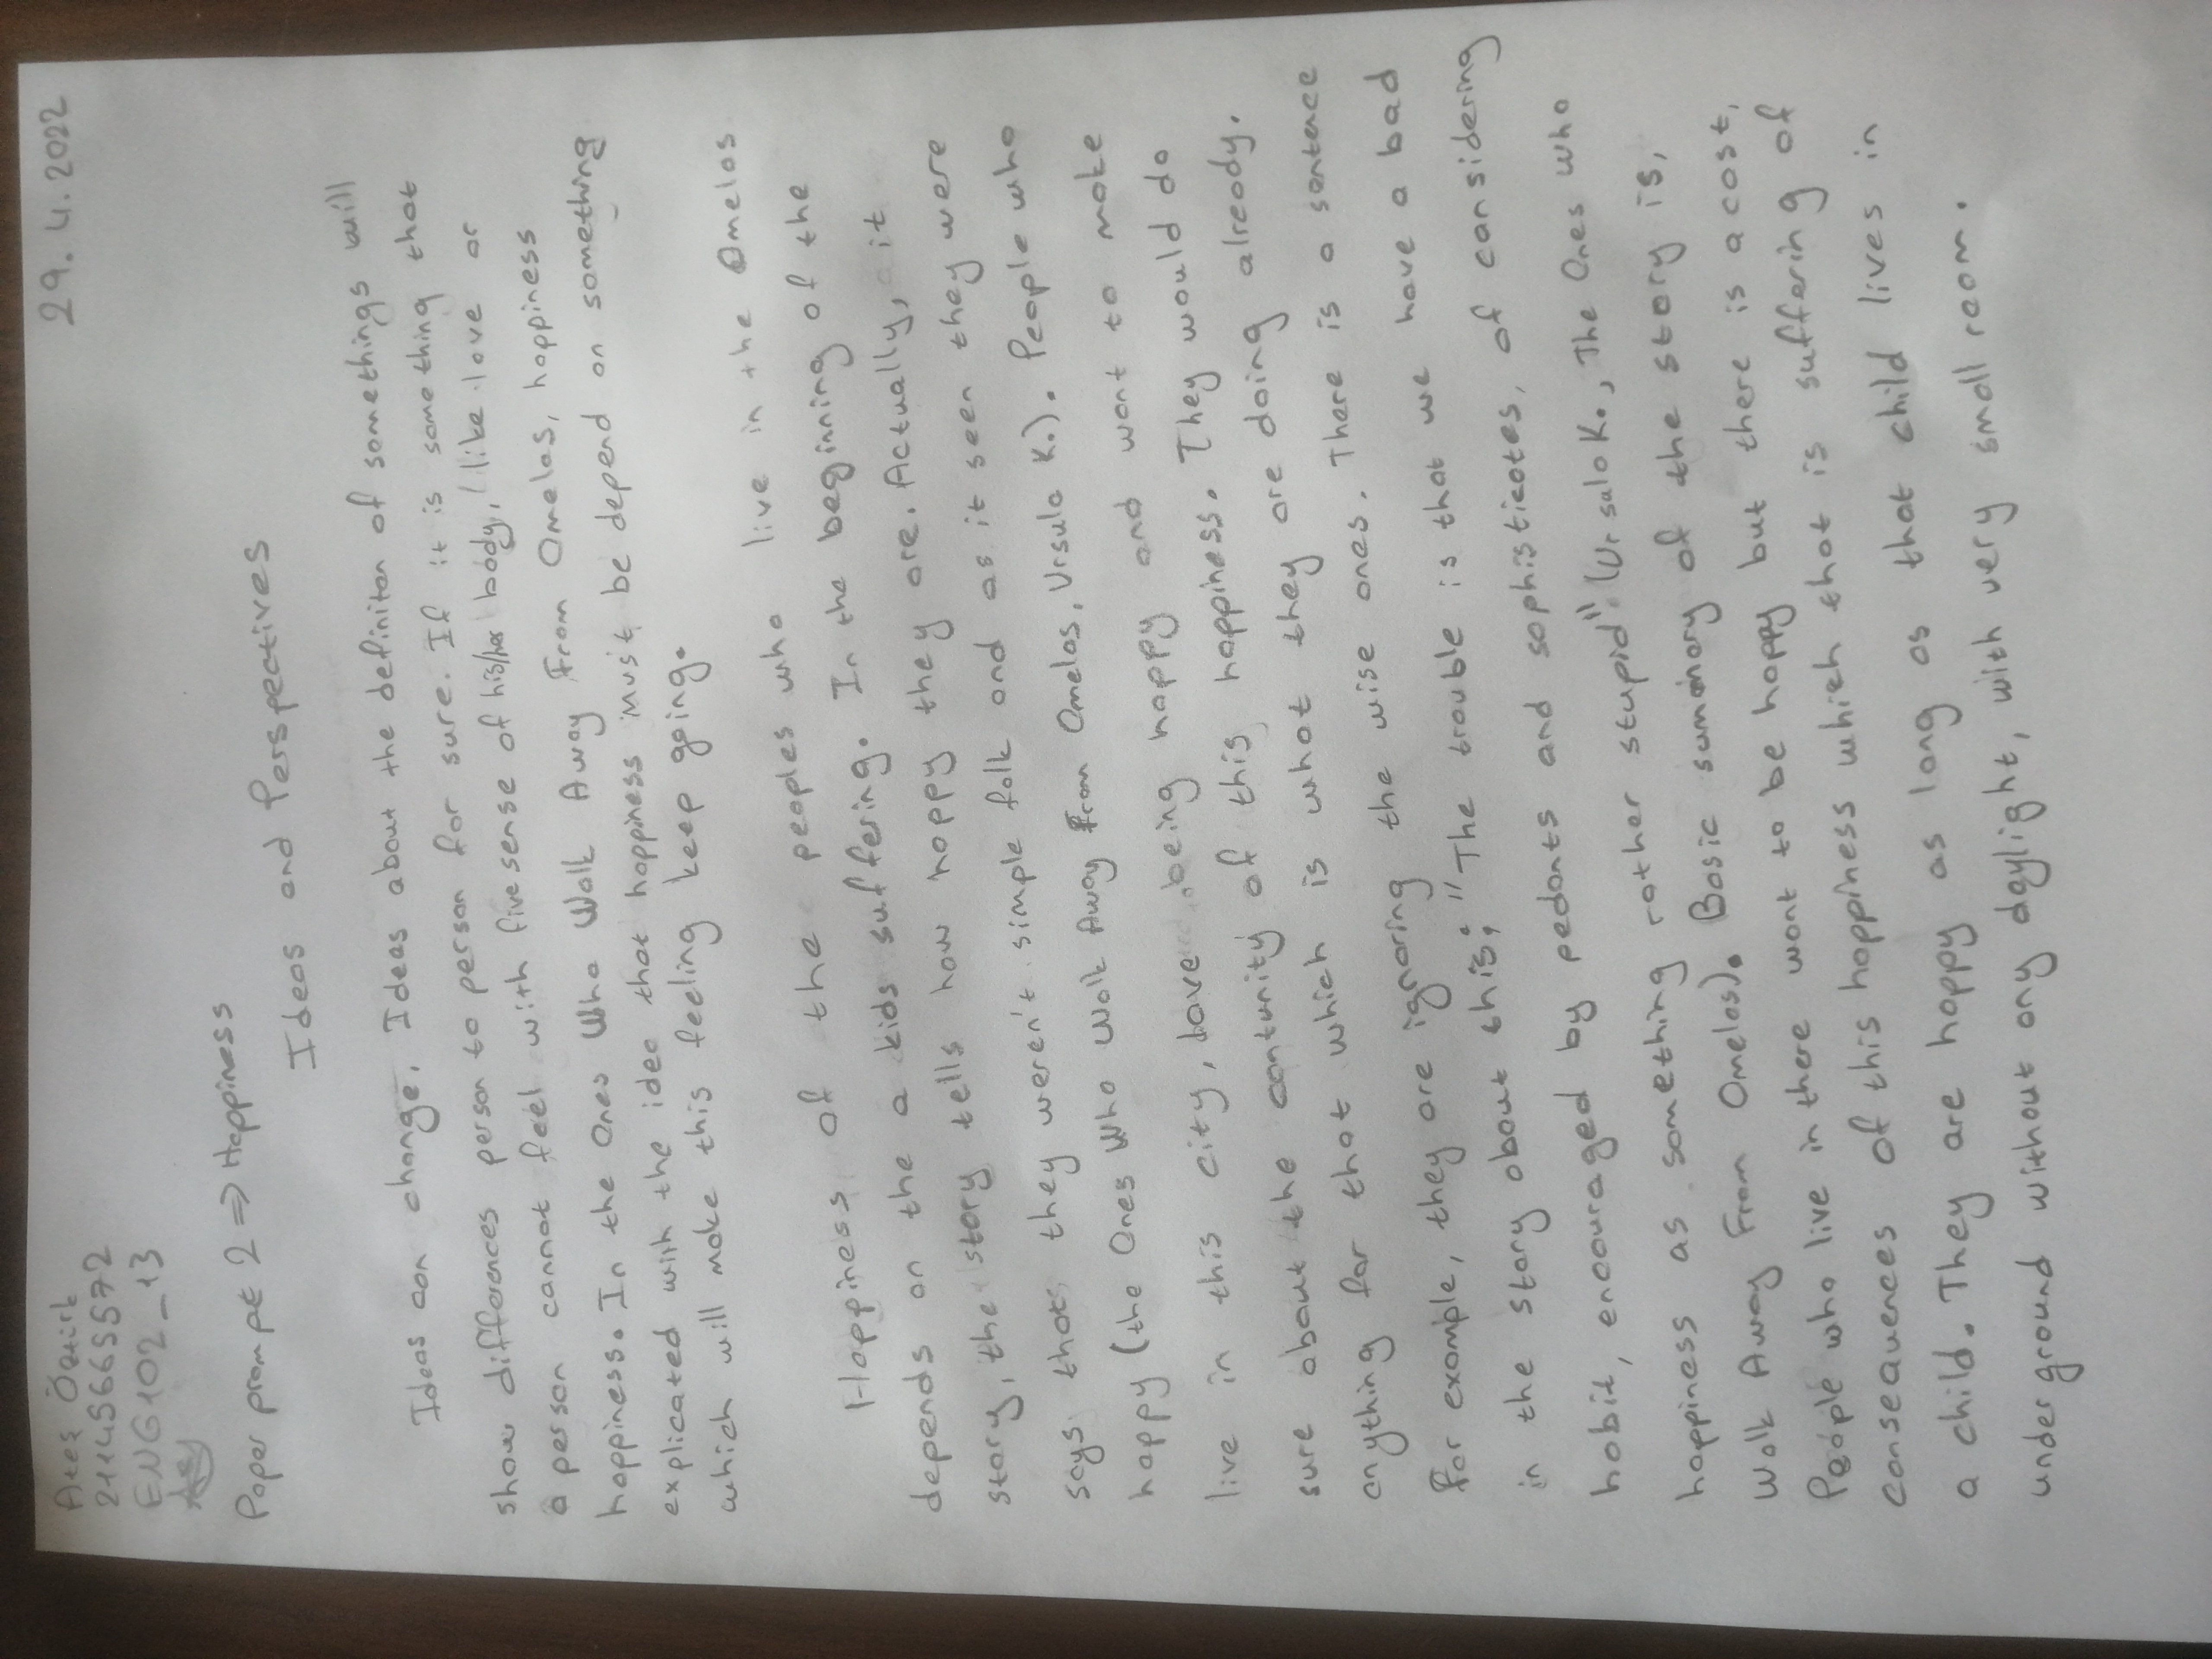 Ateş Öztürk
2114S665572
ENG102_13
29.4.2022
Paper prompt 2 => Happiness
Ideas and Perspectives
Ideas can change. Ideas about the definiton of somethings will
show differences person to person for sure. If it is something that
a person cannot feel with five sense of his/her body, like love or
happiness. In the Ones Who Walk Away From Omelas, happiness
explicated with the idea that happiness must be depend on something
which will make this feeling keep going.
Happiness of the peoples who live in the Omelas
depends on the a kids suffering. In the beginning of the
story, the story tells how happy they are. Actually, it
says that, they weren't simple folk and as it seen they were
happy (the Ones Who Walk Away From Omelas, Ursula K.). People who
live in this city, love being happy and want to make
sure about the contunity of this happiness. They would do
anything for that which is what they are doing already.
For example, they are ignoring the wise ones. There is a sentence
in the story about this; "The trouble is that we have a bad
habit, encouraged by pedants and sophisticates, of considering
happiness as something rather stupid" (Ursula K., The Ones who
Walk Away From Omelas). Basic summary of the story is,
People who live in there want to be happy but there is a cost,
conseauences of this happiness which that is suffering of
a child. They are happy as long as that child lives in
under ground without any daylight, with very small room.